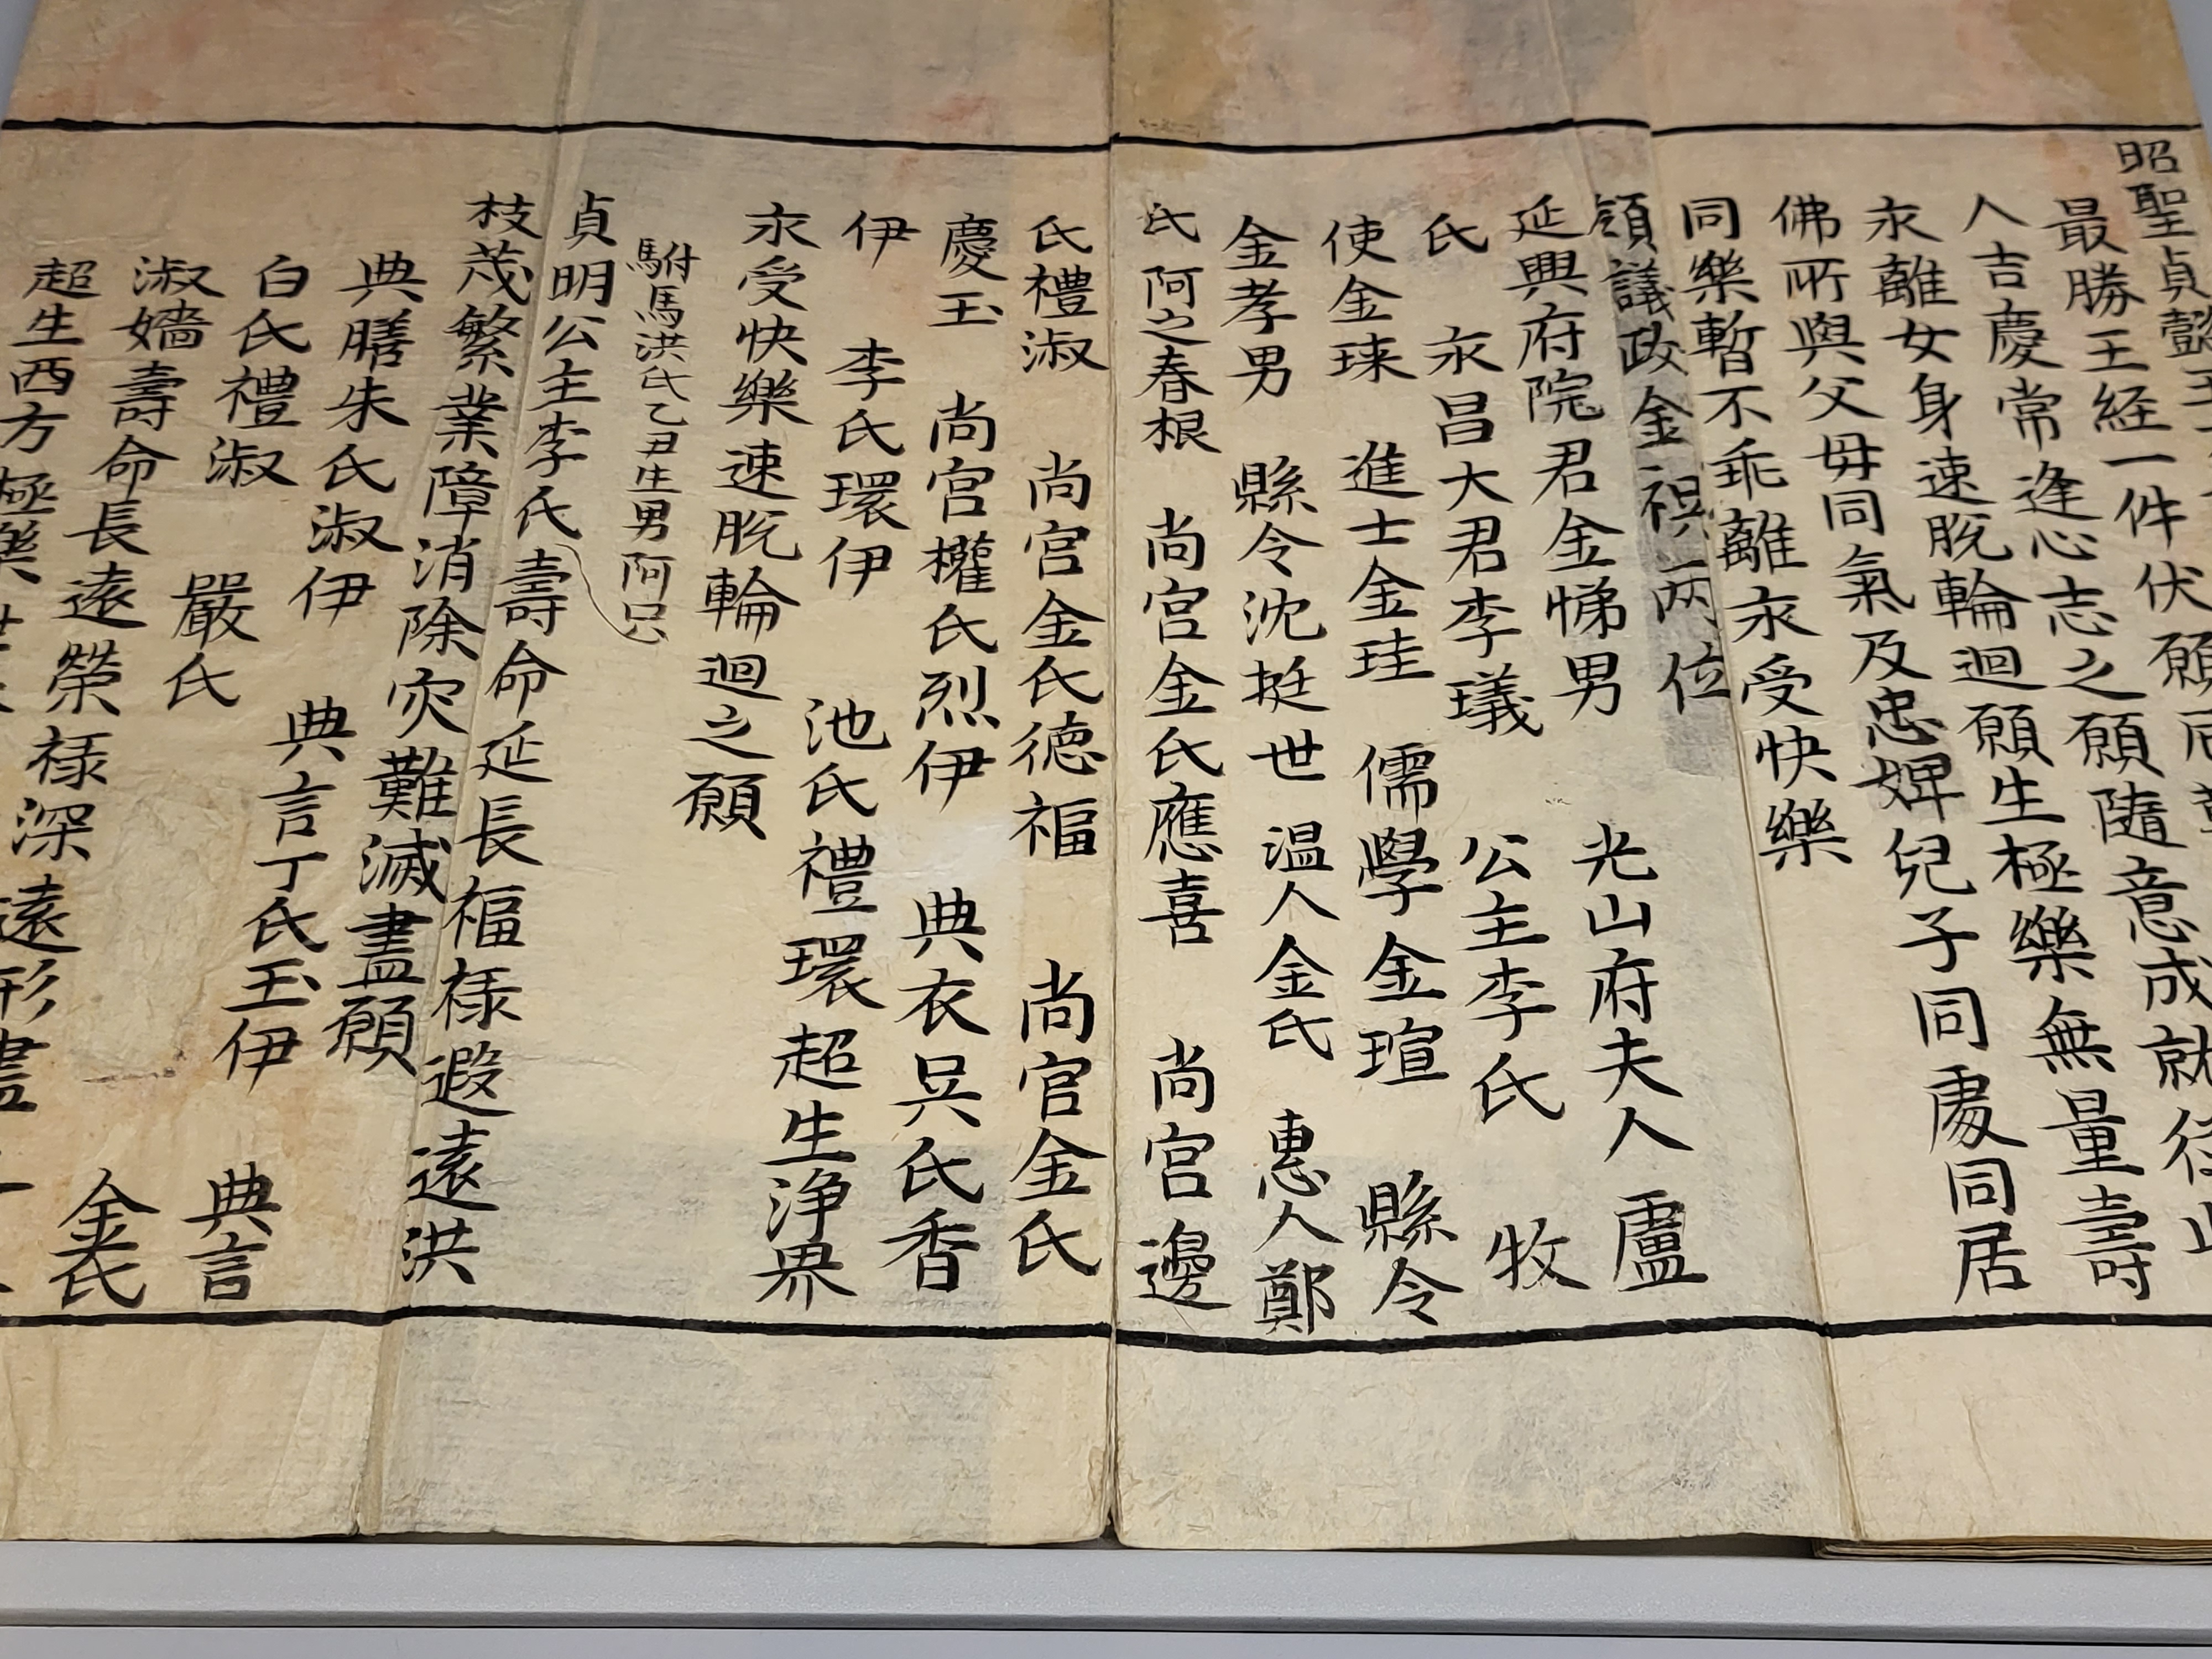 昭聖貞懿
最勝王経一件伏願
人吉慶常逢心志之願隨意成就
永離女身速脫輪迴願生極樂無量壽
佛所與父母同氣及忠婢兒子同處同居
同樂暫不乖離永受快樂
領議政金祦兩位
延興府院君金悌男 光山府夫人 盧
氏 永昌大君李㼁 公主李氏 牧
使金琜 進士金珪 儒學金瑄 縣令
金孝男 縣令沈挺世 温人金氏 惠人鄭
氏 阿之春根 尚宮金氏應喜 尚宮邊
氏禮淑 尚宮金氏德福 尚宮金氏
慶玉 尚宮權氏烈伊 典衣吳氏香
伊 李氏環伊 池氏禮環超生淨界
永受快樂速脫輪迴之願
駙馬洪氏乙丑生男阿只
貞明公主李氏壽命延長福祿遐遠洪
枝茂繁業障消除灾難滅盡願
典膳朱氏淑伊 典言丁氏玉伊 典言
白氏禮淑 嚴氏 金氏
淑嬙壽命長遠榮祿深遠形盡
超生西方極樂